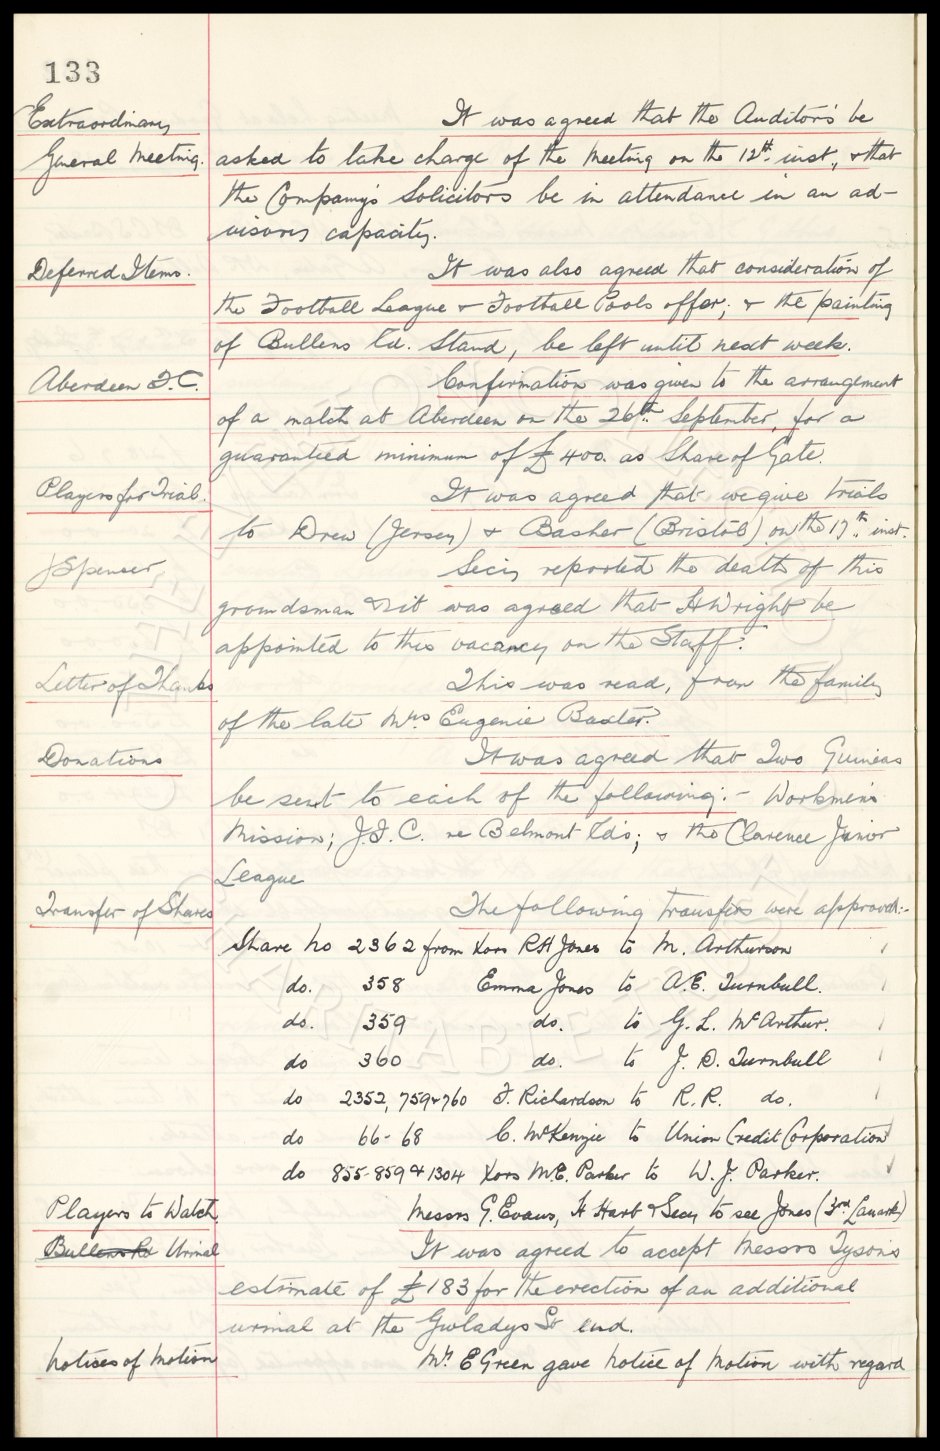 133
Extraordinary It was agreed that the Auditors be
General Meeting. asked to take charge of the Meeting on the 12th inst., & that
the Company's Solicitors be in attendance in an ad-
visory capacity.
Deferred Items. It was also agreed that consideration of
the Football League & Football Pools offer; & the painting
of Bullens Rd. Stand, be left until next week.
Aberdeen F.C. Confirmation was given to the arrangement
of a match at Aberdeen on the 26th September, for a
guaranteed minimum of £400. as Share of Gate.
Players for Trial. It was agreed that we give trials
to Drew (Jersey) & Basher (Bristol) on the 17th inst.
J Spencer Secy reported the death of this
groundsman & it was agreed that H Wright be
appointed to this vacancy on the Staff.
Letter of Thanks This was read, from the family
of the late Mrs Eugenie Baxter.
Donations It was agreed that Two Guineas
be sent to each of the following:- Workmen's
Mission; J.F.C. re Belmont Rd's; & the Clarence Junior
League
Transfer of Shares The following transfers were approved:-
Share No 2362 from Xors R H Jones to M. Arthurson
do. 358 Emma Jones to A.E. Turnbull.
do. 359 do. to G. L. McArthur.
do 360 do. to J. D. Turnbull
do 2352, 759 & 760 F. Richardson to R. R. do.
do 66-68 C. McKenzie to Union Credit Corporation
do 855-859 & 1304 Xors M.E. Parker to W. J. Parker.
Players to Watch. Messrs G. Evans, H Hart & Secy to see Jones (3rd Lanark)
Bullens Rd Urinal It was agreed to accept Messrs Tysons
estimate of £183 for the erection of an additional
urinal at the Gwladys St end.
Notices of Motion Mr E Green gave Notice of Motion with regard